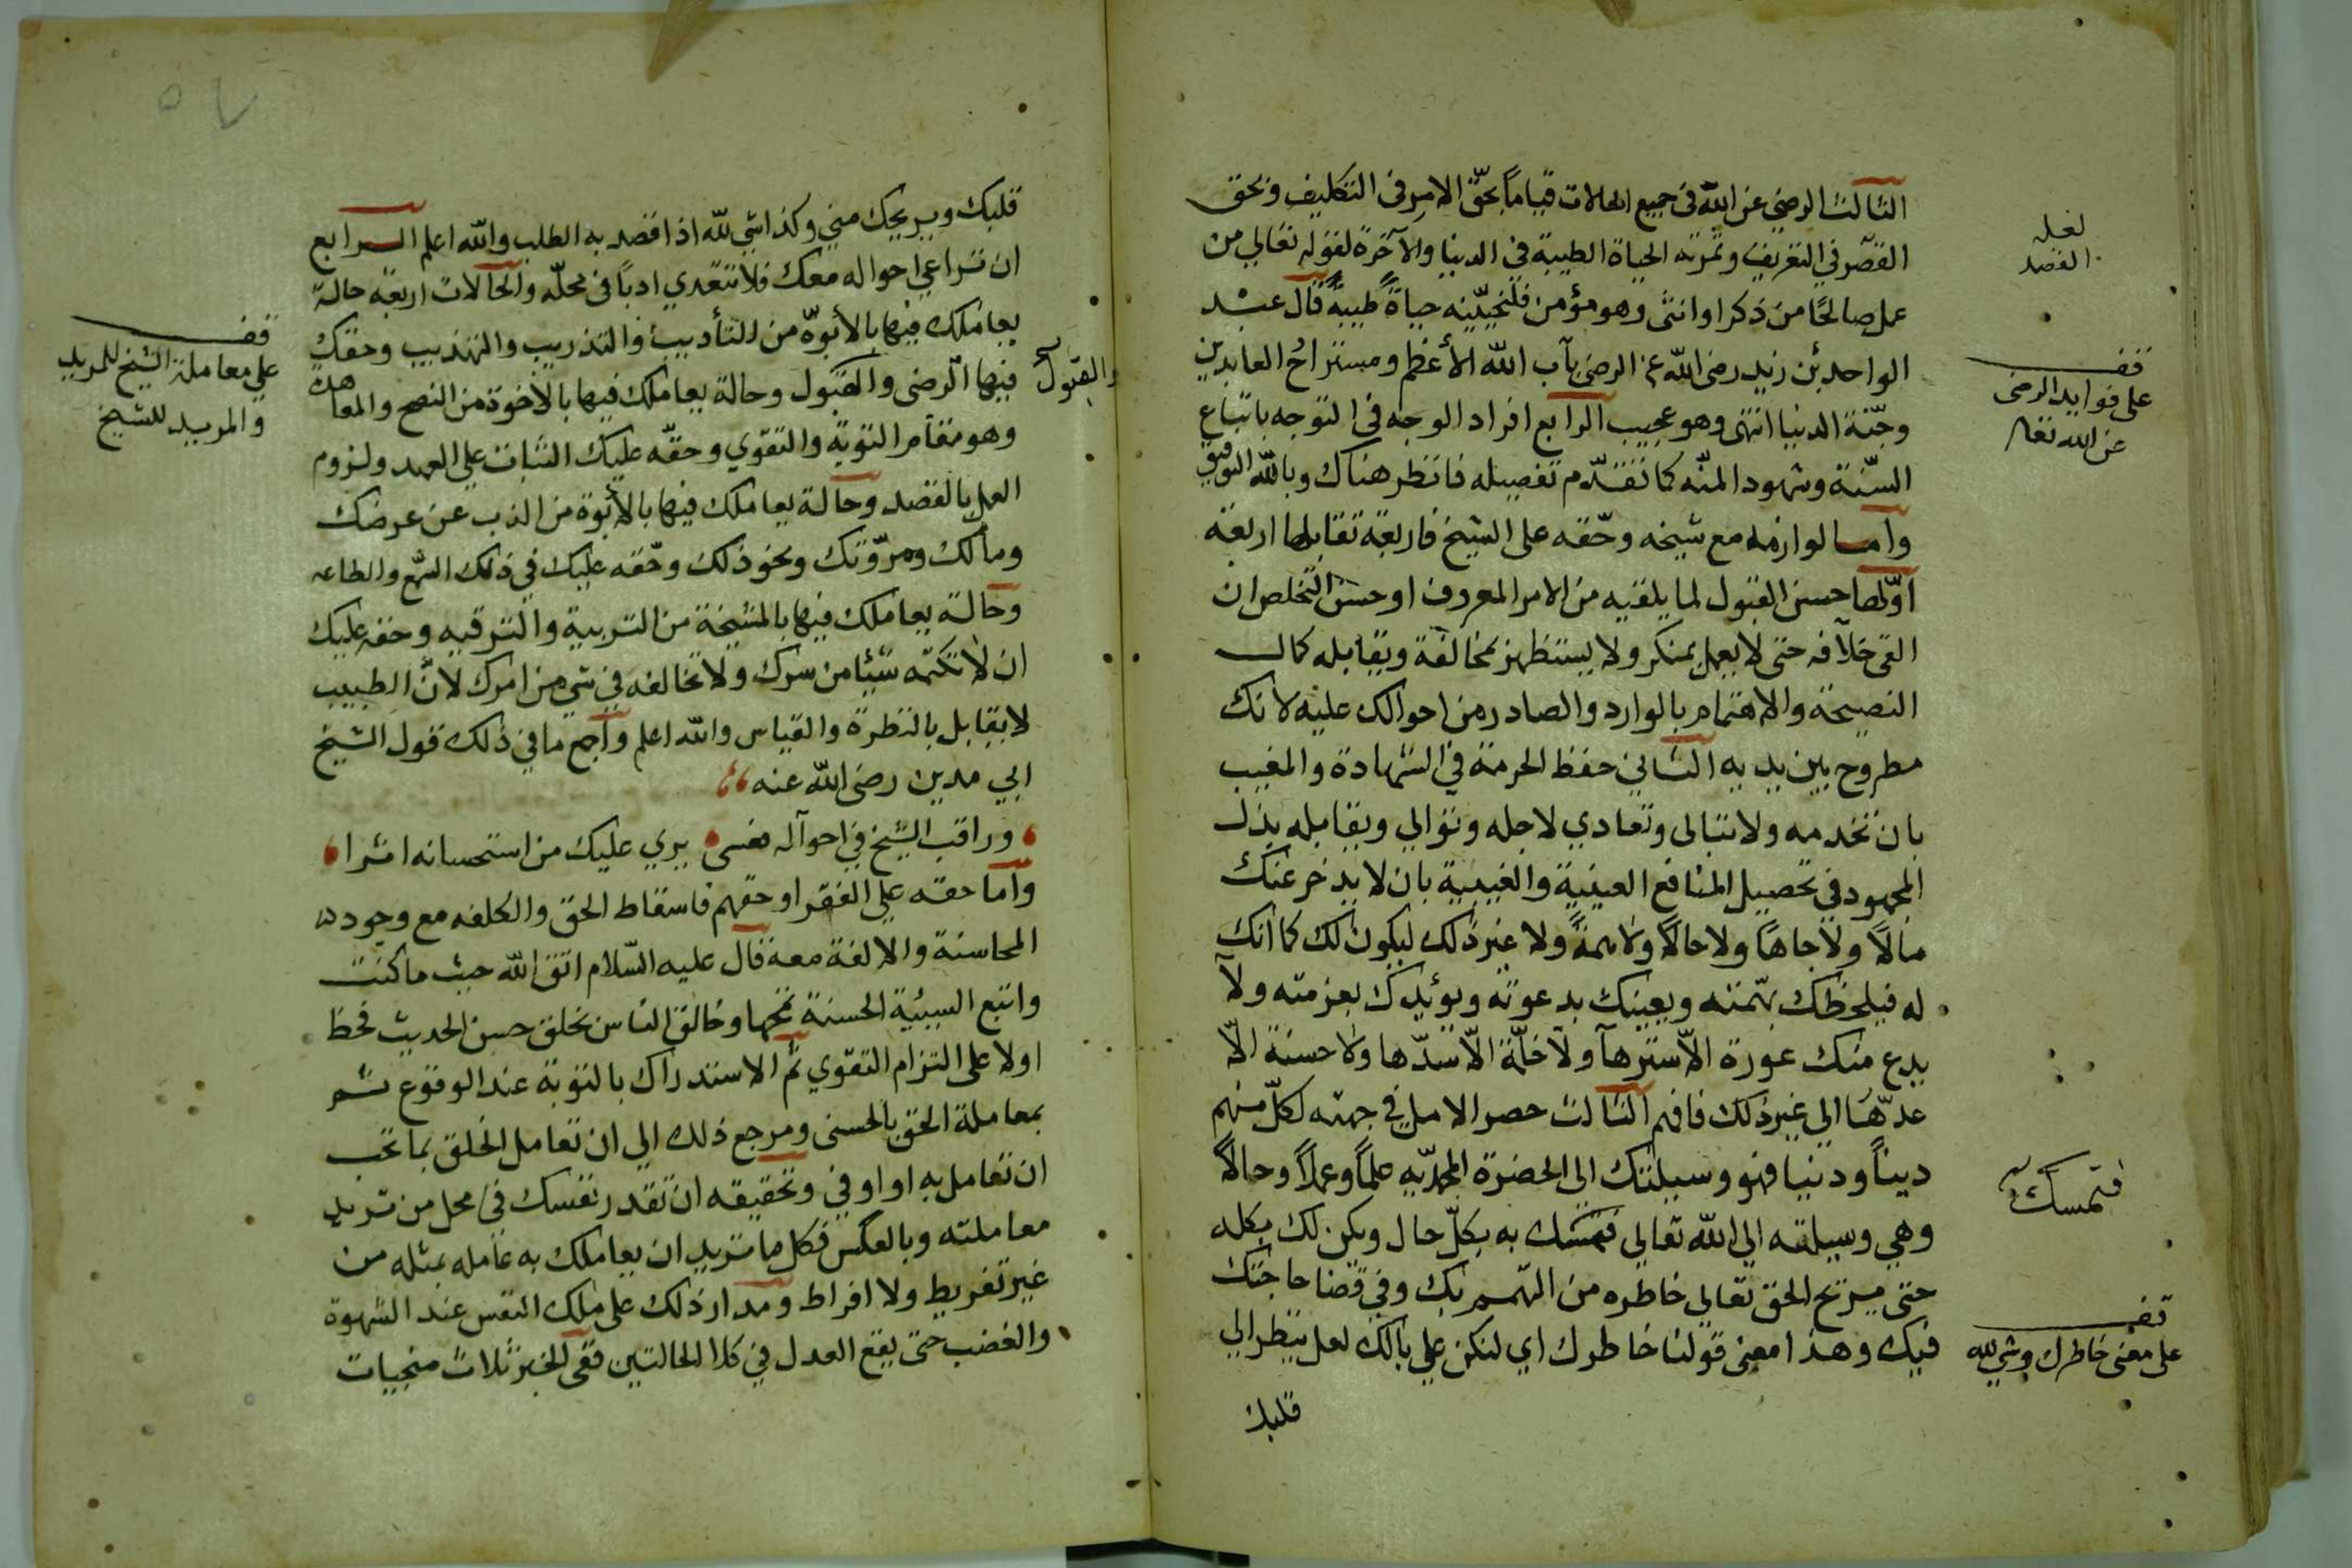 الثالث الرضي عن الله في جميع الحالات قياماً بحقّ الامر في التكليف وبحق
القصر في التعريف وثمرته الحياة الطيبة في الدنيا والآخرة لقوله تعالي من
عمل صالحًا من ذكر او انثى وهو مؤمن فلنحيينه حياة طيبة قال عبد
الواحد بن زيد رضى الله عنه الرضى باب الله الأعظم ومستراح العابدين
وجنّة الدنيا انتهى وهو عجيب الرابع افراد الوجه في التوجه باتباع
السّنة وشهود المنّه كما تقدّم تفصيله فانظر هناك وبالله التوفيق
وامـا لوازمه مع شيخه وحقه على الشيخ فاربعة تقابلها اربعة
اوّلها حسن القبول لما يلقيه من الامر المعروف او حسن التخلص ان
القى خلافه حتى لا يعمل بمنكر ولا يستظهر بمخالفة ويقابله كمال
النصيحة والاهتمام بالوارد والصادر من احوالك عليه لانك
مطروح بين يديه الثاني حفظ الحرمة في الشهادة والمغيب
بان تخدمه ولا تبالى وتعادي لاجله وتوالي ويقابله بذل
المجهود في تحصيل المنافع العينية والغيبية بان لا يدخر عنك
مالاً ولا جاهاً ولا حالاً ولا همةً ولا غير ذلك ليكون لك كما انك
له فيلحظك بهمّته ويعينك بدعوته ويؤيدك بعزمته ولا
يدع منك عورة الاّ سترها ولا خلّة الاّ سدّها ولا حسنة الاّ
عدّها الى غير ذلك فافهم الثالث حصر الامل في جهته لكلّ منهم
ديناً ودنيا فهو وسيلتك الى الحضرة المحمديّه علماً وعملاً وحالاً
وهي وسيلته الي الله تعالي فتمسّك به بكلّ حال ويكن لك بكله
حتى يريح الحق تعالي خاطره من التهمم بك وفي قضا حاجتك
فيك وهذا معنى قولنا خاطرك اي لنكن علي بالك لعل ينظر الي
قلبك
لعله
القصد
قف
على فوايد الرضى
عن الله تعالى
فتمسك
قف
على معنى خاطرك وشي لله
قلبك ويريحك مني وكذا شي لله اذا قصد به الطلب والله اعلم الـرابع
ان تراعي احواله معك فلا تتعدي ادباً في محلّه والحالات اربعة حالة
يعاملك فيها بالأبوّة من التأديب والتدريب والتهذيب وحقك
فيها الرضى والقبول وحالة يعاملك فيها بالاخوة من النصح والمعاهدة
وهو مقام التوبة والتقوي وحقّه عليك الثبات علي العهد ولزوم
العمل بالقصد وحالة يعاملك فيها بالأبوة من الذب عن عرضك
ومالك ومروّتك ونحو ذلك وحّقه عليك في ذلك السّمع والطاعه
وحالة يعاملك فيها بالمشيخة من التربية والترقيه وحقه عليك
ان لا تكتمه شيئا من سرك ولا تخالفه في شي من امرك لانّ الطبيب
لا يقابل بالنظرة والقياس والله اعلم واجمع ما في ذلك قول الشيخ
ابي مدين رضى الله عنه
وراقب الشيخ في احواله فعسى يري عليك من استحسانه اثرا
وامّا حقه علي الفقرا وحقهم فاسقاط الحق والكلفه مع وجود
المحاسنة والالفة معه قال عليه السّلام اتق الله حيث ما كنت
واتبع السيئية الحسنة تمحها وخالق الناس بخلق حسن الحديث فحظ
اولا على التزام التقوي ثم الاستدراك بالتوبة عند الوقوع ثـم
بمعاملة الحق بالحسنى ومرجع ذلك الي ان تعامل الخلق بما تحب
ان تعامل به او اوفي وتحقيقه ان تقدر نفسك في محل من تريد
معاملته وبالعكس فكل ما تريد ان يعاملك به عامله بمثله من
غير تفريط ولا افراط ومدار ذلك على ملك النفس عند الشهوة
والغضب حتى يقع العدل في كلا الحالتين ففي الخبر ثلاث منجيات
والقبول
قف
علي معاملة الشيخ للمريد
والمريد للشيخ
٥٧